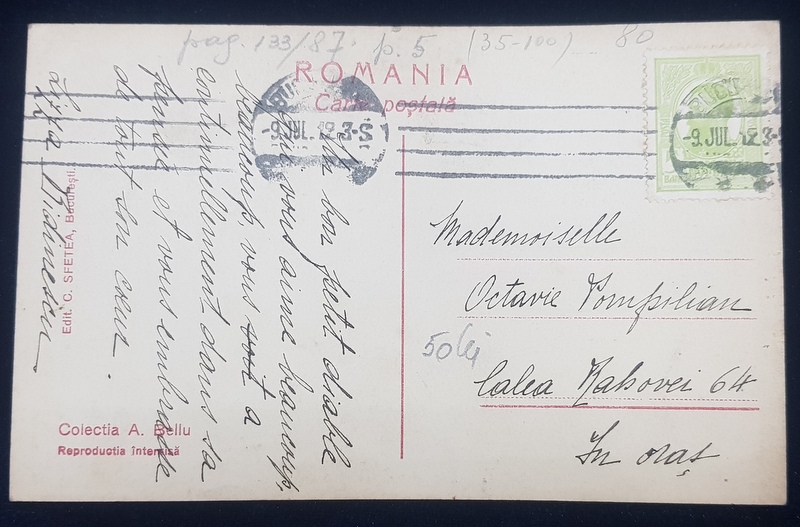 pag. 133/87. p. 5 (35-100) 80
ROMANIA
Carte poștală
-9.JUL.12.3-S
-9.JUL.12.3-
bon petit diable
que vous aime beaucoup,
beaucoup, vous a
continuellement dans sa
et vous embrasse
de tout son cœur.
Mademoiselle
Octavie Pompilian
Calea Rahovei 64
In oraș
50 lei
Edit. C. SFETEA, București.
Colectia A. Bellu
Reproductia interzisă